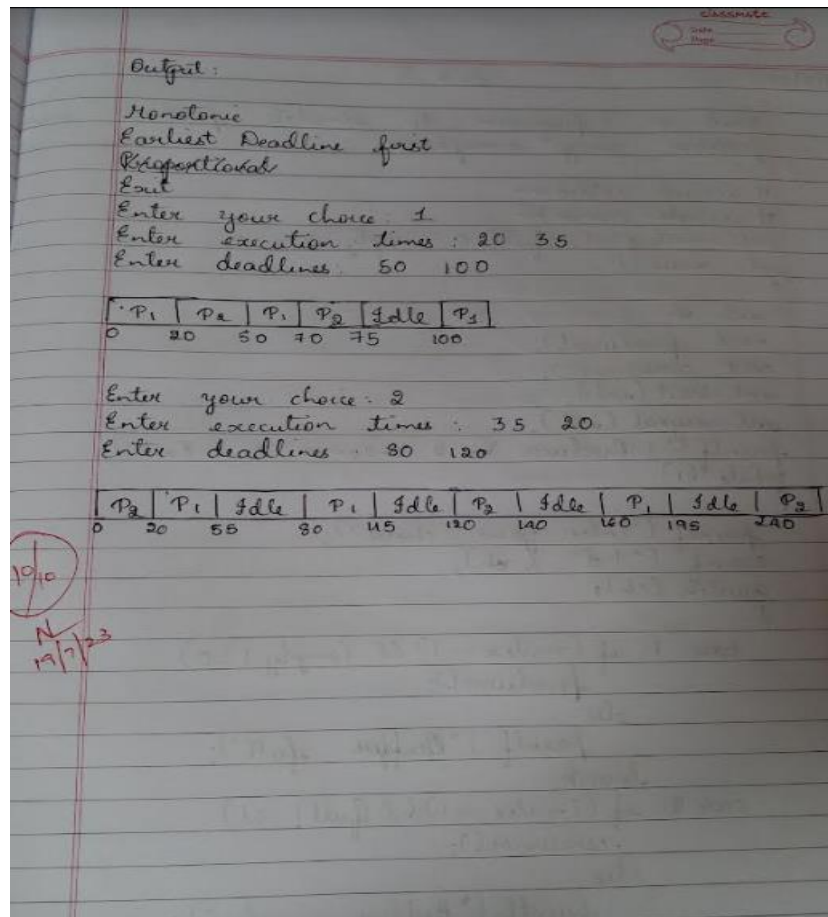 classmate
Date
Page
Output :
Monotonic
Earliest Deadline first
Proportional
Exit
Enter your choice : 1
Enter execution times : 20 35
Enter deadlines : 50 100
P1 | P2 | P1 | P2 | Idle | P1
0 20 50 70 75 100
Enter your choice : 2
Enter execution times : 35 20
Enter deadlines : 80 120
P2 | P1 | Idle | P1 | Idle | P2 | Idle | P1 | Idle | P2
0 20 55 80 115 120 140 160 195 240
10/10
N
19/7/23